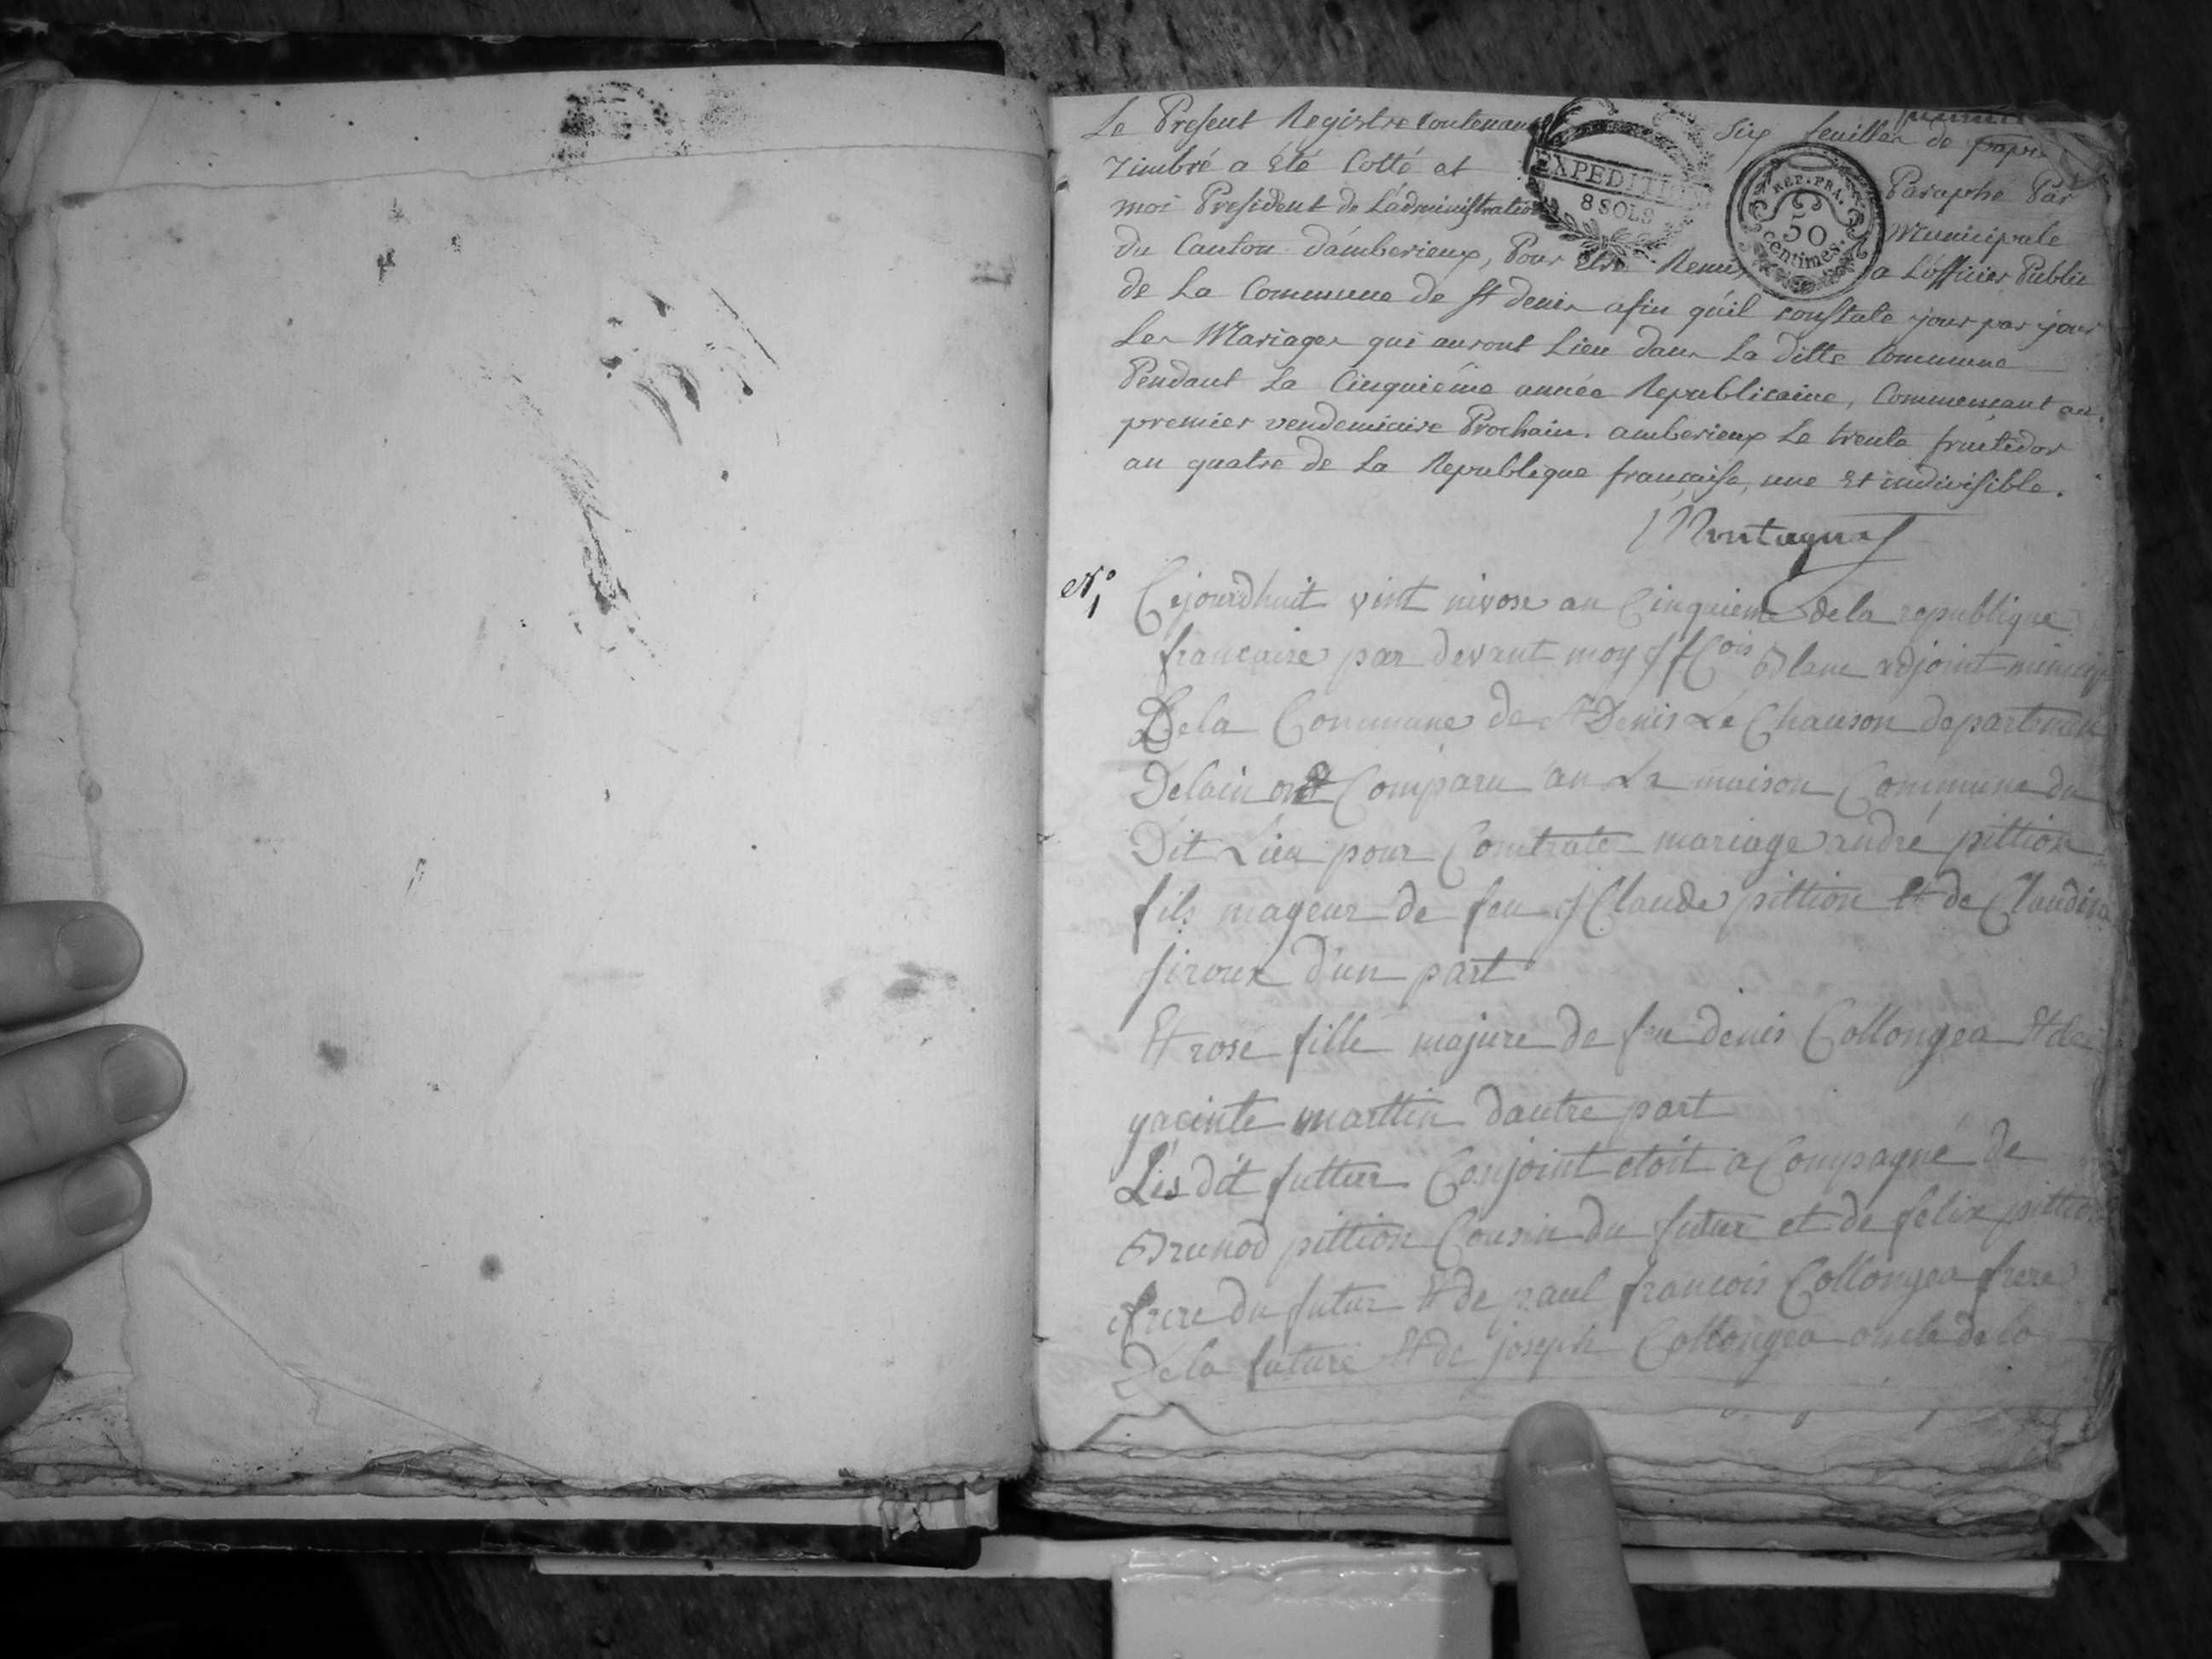 Le Present Registre Contenant six feuilles de papier
Timbré a Eté Cotté et Paraphé Par
moi President de L'administration Municipale
du Canton d'amberieux, Pour Etre Remis a L'officier Public
de La Commune de St denis afin qu'il constate jour par jour
Les Mariages qui auront Lieu dans La ditte Commune
Pendant La Cinquiéme année Republicaine, Commencant au
premier vendemiaire Prochain. amberieux Le trente fructidor
an quatre de La Republique française, une Et indivisible.
EXPEDITION
8 SOLS
REP. FRA.
50
centimes.
Montagnat
N° 1
Cejourdhuit vint nivose an Cinquieme de la republique
francaise par devant moy fCois Blanc adjoint municip
De la Commune de St Denis Le Chauson departement
Delain ont Comparu an La maison Commune du
Dit Lieu pour Contrate mariage andré pittion
fils mageur de feu Claude pittion Et de Claudine
siroux d'un part
Et rose fille majure de feu denis Collongea Et de
yacinte marttin dautre part
Lés dit futtur Conjoint etoit a Compagné de
Brunod pittion Cousin du futur et de felix pittion
frere du futur Et de paul francois Collongea frere
De la future Et de joseph Collongea oncle de la